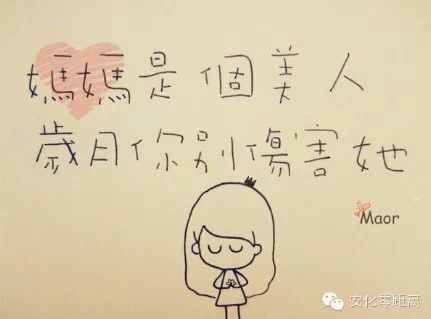 媽媽是個美人
歲月你別傷害她
Maor
安化零距离